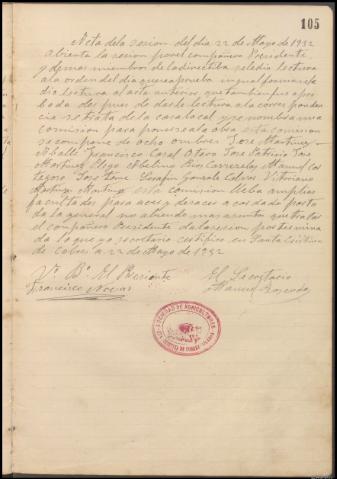 105
Acta dela sesion del dia 22 de Mayo de 1932
Abierta la sesion por el compañero Presidente
y demas miembros de la directiba se le dio lectura
a la orden del dia que se aprueba igual forma se le
dio lectura al acta anterior que tambien fue apro
bada des pues de darle lectura ala correspondan
cia se trata de la casa local y se nombra una
comision para ponerse ala obra esta comision
se compone de ocho ombres Jose Martinez
Francisco Coral Otero Jose Patricio Jose
Martinez Manuel Cor
Jose Serafin Gonzalo Vitoriano
Martinez esta comision lleba amplias
facultades para acer y desacer acordado por to
da la general no abiendo mas asuntos que tratar
el compañero Presidente da la sesion por termina
da lo que yo secretario certifico en Santa Cristina
de Cobres a 22 de Mayo de 1932
Vº Bº El Presidente El Secretario
Francisco Manuel
SOCIEDAD DE AGRICULTORES